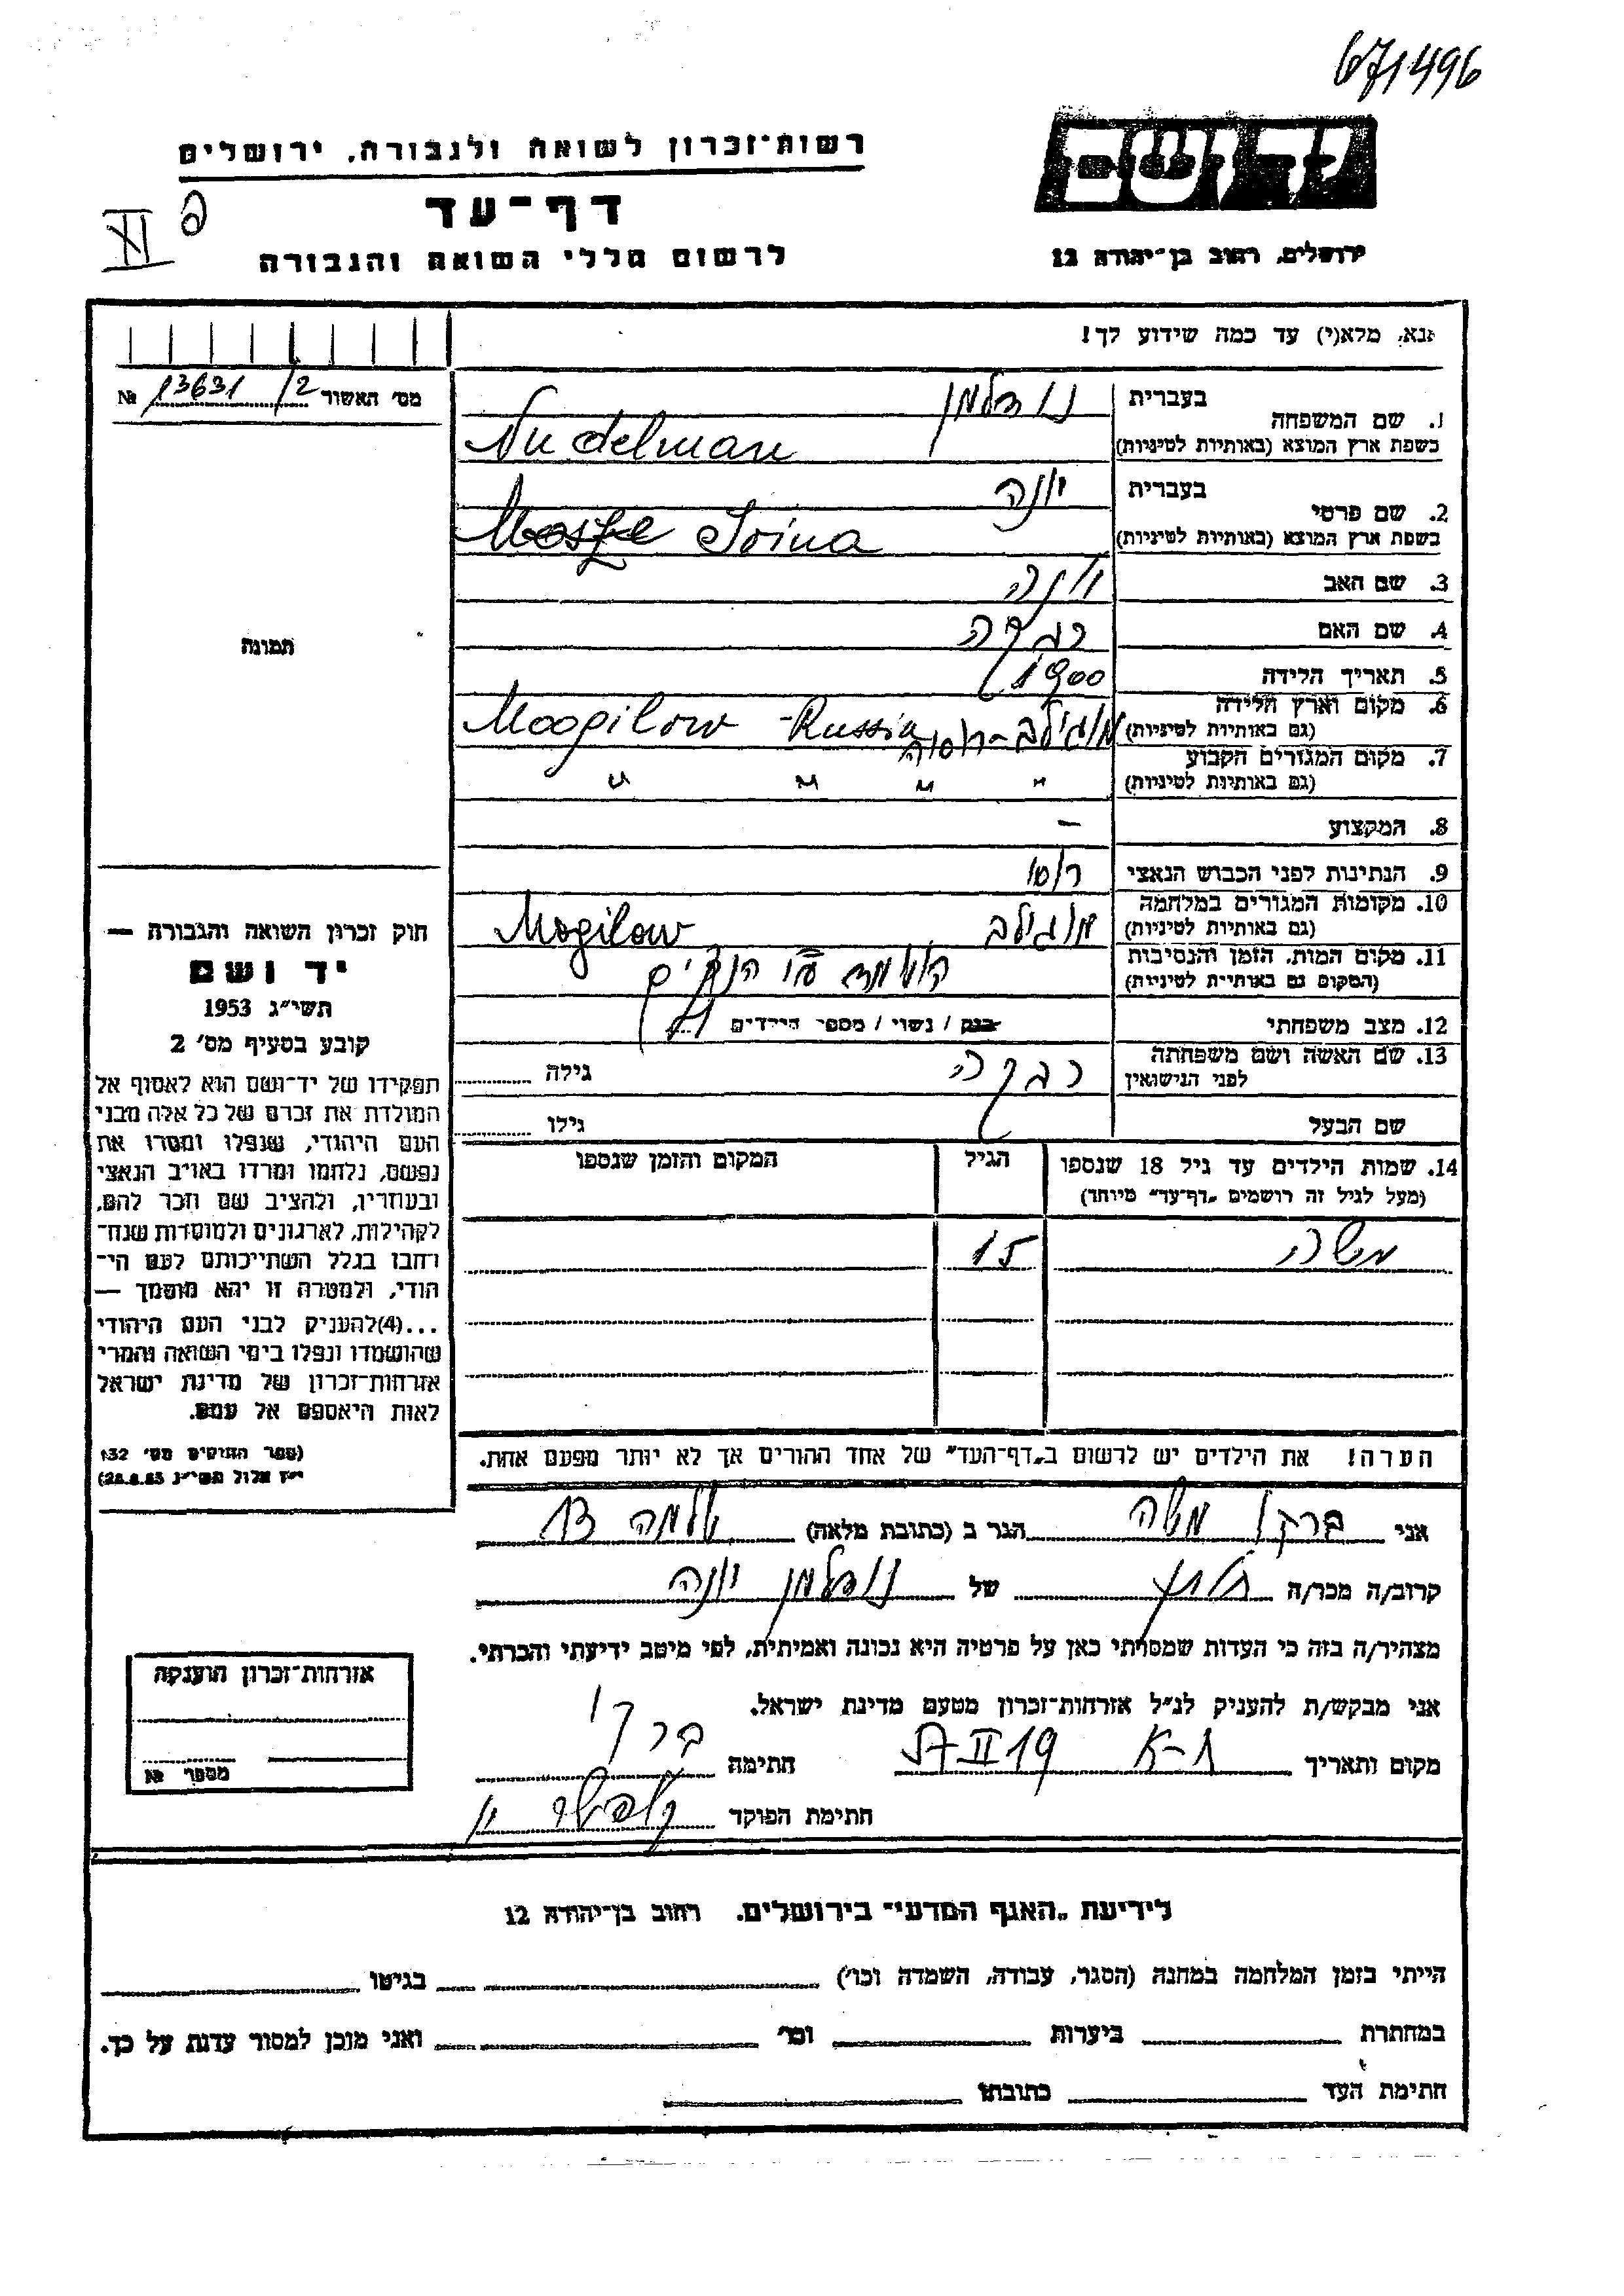 671496
יד ושם
ירושלים, רחוב בן־יהודה 12
רשות־זכרון לשואה ולגבורה, ירושלים
דף־עד
לרשום חללי השואה והגבורה
VI
אנא, מלא(י) עד כמה שידוע לך!
מס׳ האשור 13631/2 №
1. שם המשפחה
בעברית נודלמן
בשפת ארץ המוצא (באותיות לטיניות) Nudelman
2. שם פרטי
בעברית יונה
בשפת ארץ המוצא (באותיות לטיניות) Joina
3. שם האב
4. שם האם רבקה
5. תאריך הלידה 1900
6. מקום וארץ הלידה
(גם באותיות לטיניות) מוגילב - רוסיה Moogilow - Russia
7. מקום המגורים הקבוע
(גם באותיות לטיניות) " " " "
8. המקצוע –
9. הנתינות לפני הכבוש הנאצי רוסי
10. מקומות המגורים במלחמה
(גם באותיות לטיניות) מוגילב Mogilow
11. מקום המות, הזמן והנסיבות
(המקום גם באותיות לטיניות) הושמד ע״י הנאצים
12. מצב משפחתי רווק / נשוי / מספר הילדים 1
13. שם האשה ושם משפחתה
לפני הנישואין רבקה גילה
שם הבעל גילו
14. שמות הילדים עד גיל 18 שנספו
(מעל לגיל זה רושמים „דף־עד״ מיוחד)
הגיל
המקום והזמן שנספו
משה 15
הערה! את הילדים יש לרשום ב„דף־העד״ של אחד ההורים אך לא יותר מפעם אחת.
תמונה
חוק זכרון השואה והגבורה —
יד ושם
תשי״ג 1953
קובע בסעיף מס׳ 2
תפקידו של יד־ושם הוא לאסוף אל
המולדת את זכרם של כל אלה מבני
העם היהודי, שנפלו ומסרו את
נפשם, נלחמו ומרדו באויב הנאצי
ובעוזריו, ולהציב שם וזכר להם,
לקהילות, לארגונים ולמוסדות שנח־
רחבו בגלל השתייכותם לעם הי־
הודי, ולמטרה זו יהא מוסמך —
...(4) להעניק לבני העם היהודי
שהושמדו ונפלו בימי השואה והמרי
אזרחות־זכרון של מדינת ישראל
לאות היאספם אל עמם.
(ספר החוקים מס׳ 132
י״ז אלול תשי״ג 28.8.53)
אני ברקן משה הגר ב (כתובת מלאה) 13
קרוב/ה מכר/ה של נודלמן יונה
מצהיר/ה בזה כי העדות שמסרתי כאן על פרטיה היא נכונה ואמיתית, לפי מיטב ידיעתי והכרתי.
אני מבקש/ת להעניק לנ״ל אזרחות־זכרון מטעם מדינת ישראל.
מקום ותאריך 19 II 57 חתימה ברקן
חתימת הפוקד
אזרחות־זכרון הוענקה
מספר №
לידיעת „האגף המדעי״ בירושלים, רחוב בן־יהודה 12
הייתי בזמן המלחמה במחנה (הסגר, עבודה, השמדה וכו׳) בגיטו
במחתרת ביערות וכו׳ ואני מוכן למסור עדות על כך.
חתימת העד כתובתו